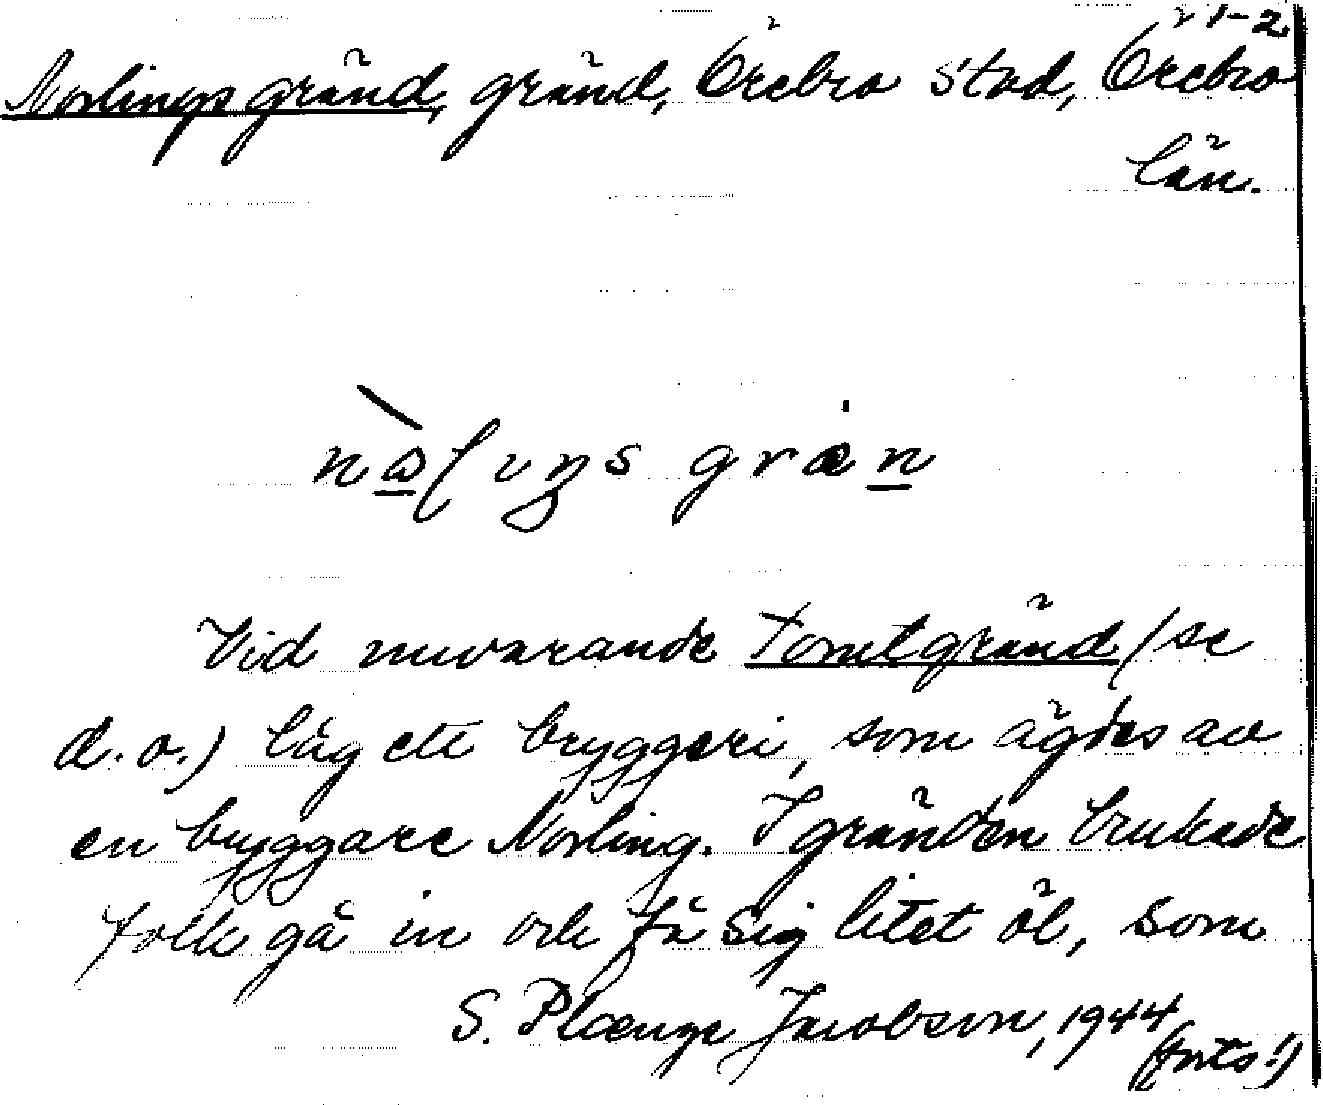 1-2
Norlings gränd, gränd, Örebro stad, Örebro
län.
Vid nuvarande Tomtgränd (se
d.o.) låg ett bryggeri, som ägdes av
en bryggare Norling. I gränden brukade
folk gå in och få sig litet öl, som
S. Plænge Jacobson, 1944
(forts!)